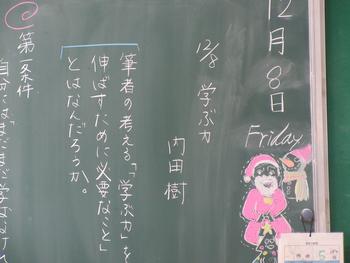 12月8日
Friday
12/8 学ぶ力
内田樹
筆者の考える「学ぶ力」を
伸ばすために必要なこと」
とはなんだろうか。
第一条件
自分には「まだまだ学ばなければ